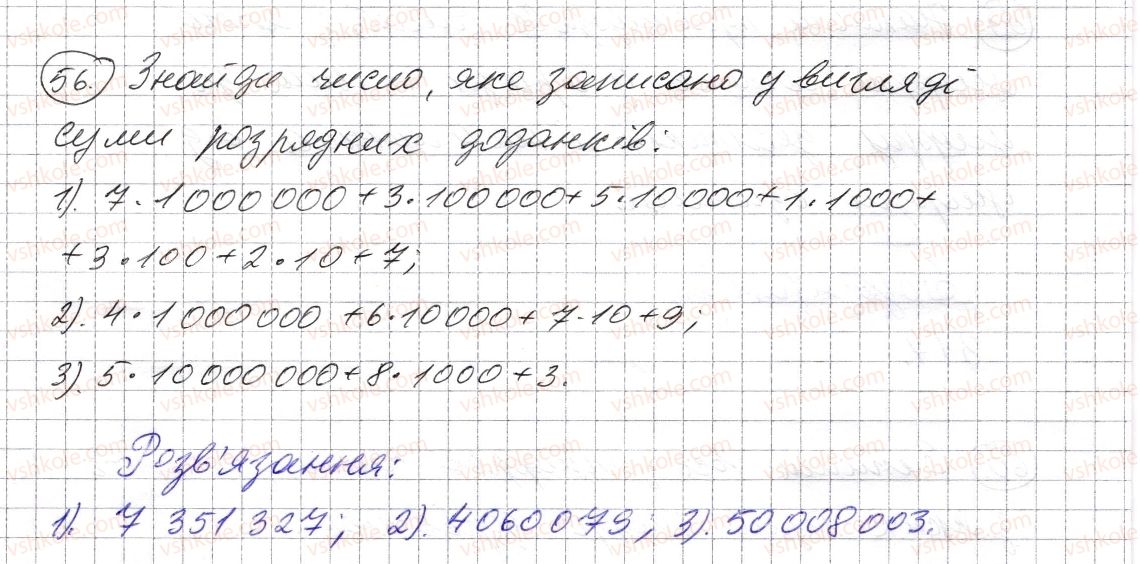 56. Знайди число, яке записано у вигляді
суми розрядних доданків:
1). 7·1000000+3·100000+5·10000+1·1000+
+3·100+2·10+7;
2). 4·1000000+6·10000+7·10+9;
3). 5·10000000+8·1000+3.
Розв'язання:
1). 7 351 327; 2). 4060079; 3). 50008003.